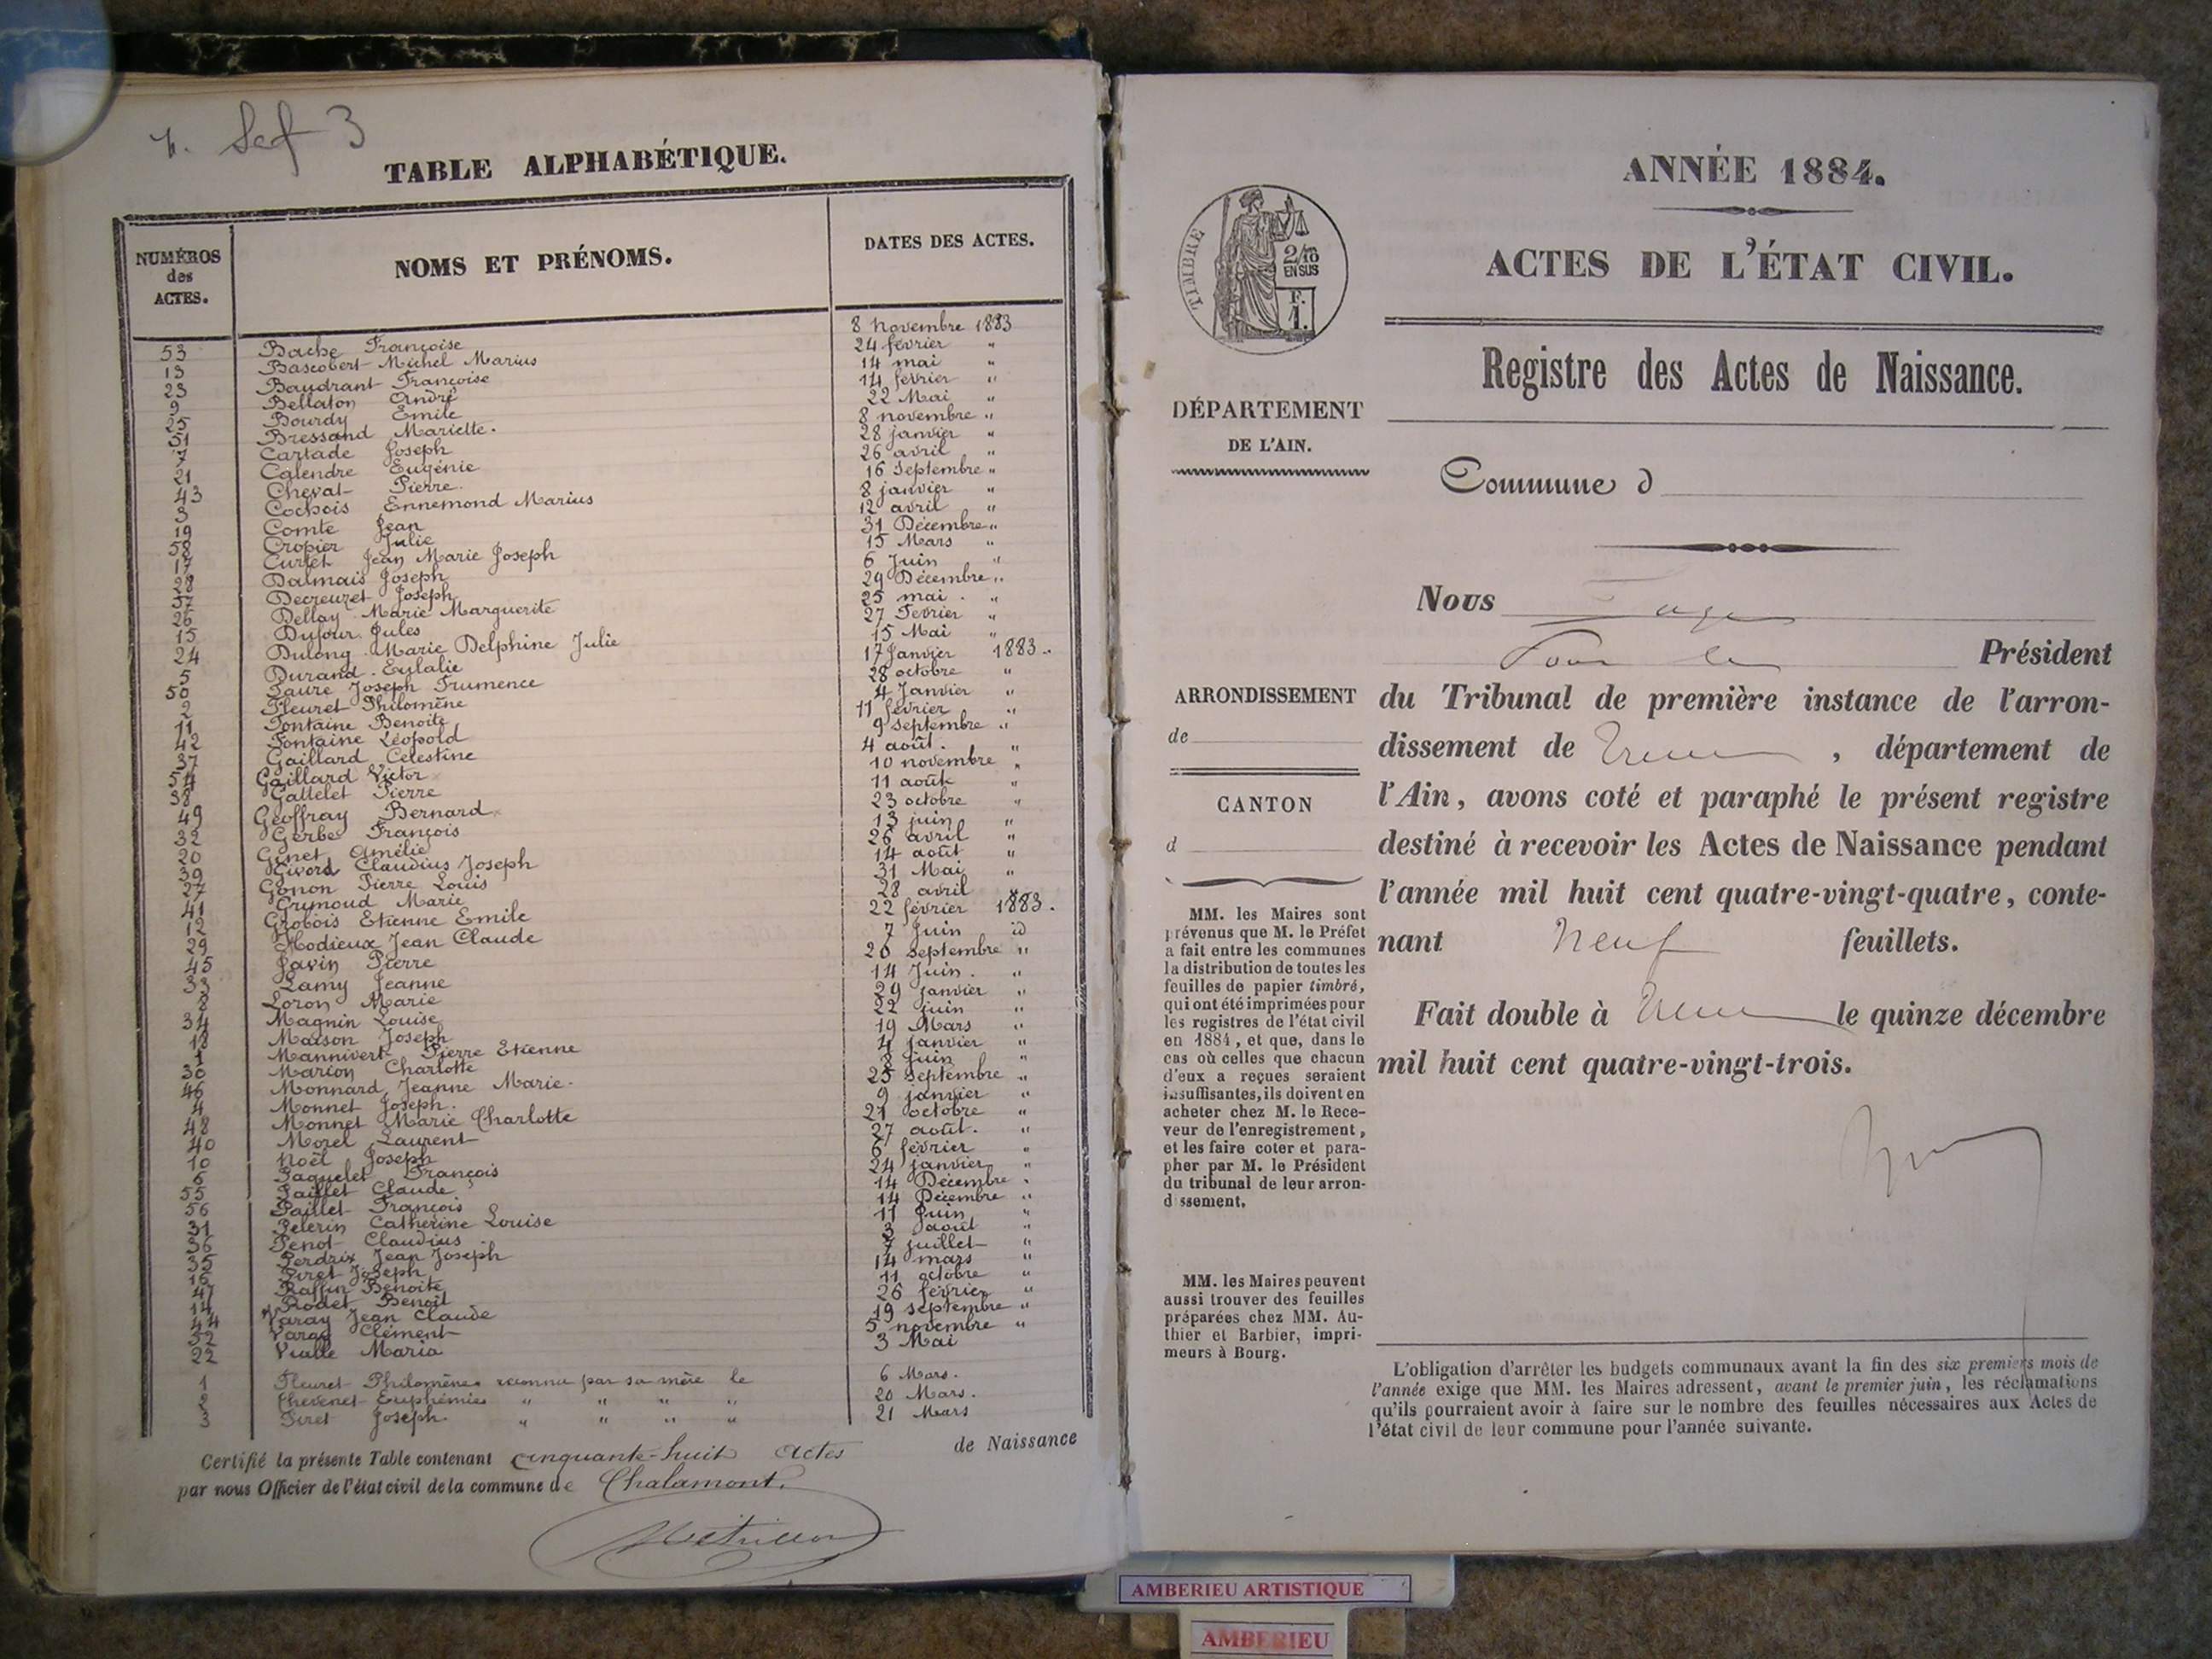 Sef 3
TABLE ALPHABÉTIQUE.
NUMÉROS des ACTES. NOMS ET PRÉNOMS. DATES DES ACTES.
53 Bache Françoise 8 novembre 1883
13 Bascobert Michel Marius 24 février "
23 Baudrant Françoise 14 mai "
9 Bellaton André 14 février "
25 Bourdy Emile 22 Mai "
51 Bressand Mariette. 8 novembre "
7 Cartade Joseph 28 janvier "
21 Calendre Eugénie 26 avril "
43 Cheval Pierre. 16 Septembre "
3 Cochois Ennemond Marius 8 janvier "
19 Comte Jean 12 avril "
58 Cropier Julie 31 Décembre "
17 Curtet Jean Marie Joseph 15 Mars "
28 Dalmais Joseph 6 Juin "
57 Decreuzet Joseph 29 Décembre "
26 Dellay Marie Marguerite 25 mai. "
15 Dufour Jules 27 Fevrier "
24 Dulong Marie Delphine Julie 15 Mai "
5 Durand. Eulalie 17 Janvier 1883
50 Faure Joseph Frumence 28 octobre "
2 Fleuret Philomène 4 Janvier "
11 Fontaine Benoite 11 février "
42 Fontaine Léopold 9 septembre "
37 Gaillard Célestine 4 août. "
54 Gaillard Victor 10 novembre "
38 Gattelet Pierre 11 août "
49 Geoffray Bernard 23 octobre "
32 Gerbe François 13 juin "
20 Ginet Amélie 26 avril "
39 Givord Claudius Joseph 14 août "
27 Gonon Pierre Louis 31 Mai "
41 Grimoud Marie 28 avril "
12 Grobois Etienne Emile 22 février 1883.
29 Hodieux Jean Claude 7 Juin id
45 Javin Pierre 20 septembre "
33 Lamy Jeanne 14 Juin. "
8 Loron Marie 29 janvier "
34 Magnin Louise 22 juin "
18 Maison Joseph 19 Mars "
1 Mannivert Pierre Etienne 4 janvier "
30 Marion Charlotte 8 juin "
46 Monnard Jeanne Marie. 25 Septembre "
4 Monnet Joseph. 9 janvier "
48 Monnet Marie Charlotte 21 octobre "
40 Morel Laurent 27 août. "
10 Noël Joseph 6 février "
6 Paquelet François 24 janvier "
55 Paillet Claude 14 Décembre "
56 Paillet François 14 Décembre "
31 Pelerin Catherine Louise 11 Juin "
36 Penot Claudius 3 août "
35 Perdrix Jean Joseph 7 juillet "
16 Piret Joseph 14 mars "
47 Raffin Benoite 11 octobre "
14 Rodet Benoît 26 février "
44 Varay Jean Claude 19 septembre "
52 Varay Clément 5 novembre "
22 Vialle Maria 3 Mai
1 Fleuret Philomène reconnue par sa mère le 6 Mars.
2 Chevenet Euphémie " " " " 20 Mars.
3 Piret Joseph. " " " " 21 Mars
Certifié la présente Table contenant cinquante-huit actes de Naissance
par nous Officier de l'état civil de la commune de Chalamont.
ANNÉE 1884.
ACTES DE L'ÉTAT CIVIL.
TIMBRE
2/10
EN SUS
F.
1.
Registre des Actes de Naissance.
DÉPARTEMENT
DE L'AIN.
Commune d
Nous
Pour le Président
ARRONDISSEMENT
de
CANTON
d
du Tribunal de première instance de l'arron-
dissement de , département de
l'Ain, avons coté et paraphé le présent registre
destiné à recevoir les Actes de Naissance pendant
l'année mil huit cent quatre-vingt-quatre, conte-
nant Neuf feuillets.
Fait double à le quinze décembre
mil huit cent quatre-vingt-trois.
MM. les Maires sont
prévenus que M. le Préfet
a fait entre les communes
la distribution de toutes les
feuilles de papier timbré,
qui ont été imprimées pour
les registres de l'état civil
en 1884, et que, dans le
cas où celles que chacun
d'eux a reçues seraient
insuffisantes, ils doivent en
acheter chez M. le Rece-
veur de l'enregistrement,
et les faire coter et para-
pher par M. le Président
du tribunal de leur arron-
dissement.
MM. les Maires peuvent
aussi trouver des feuilles
préparées chez MM. Au-
thier et Barbier, impri-
meurs à Bourg.
L'obligation d'arrêter les budgets communaux avant la fin des six premiers mois de
l'année exige que MM. les Maires adressent, avant le premier juin, les réclamations
qu'ils pourraient avoir à faire sur le nombre des feuilles nécessaires aux Actes de
l'état civil de leur commune pour l'année suivante.
AMBERIEU ARTISTIQUE
AMBERIEU